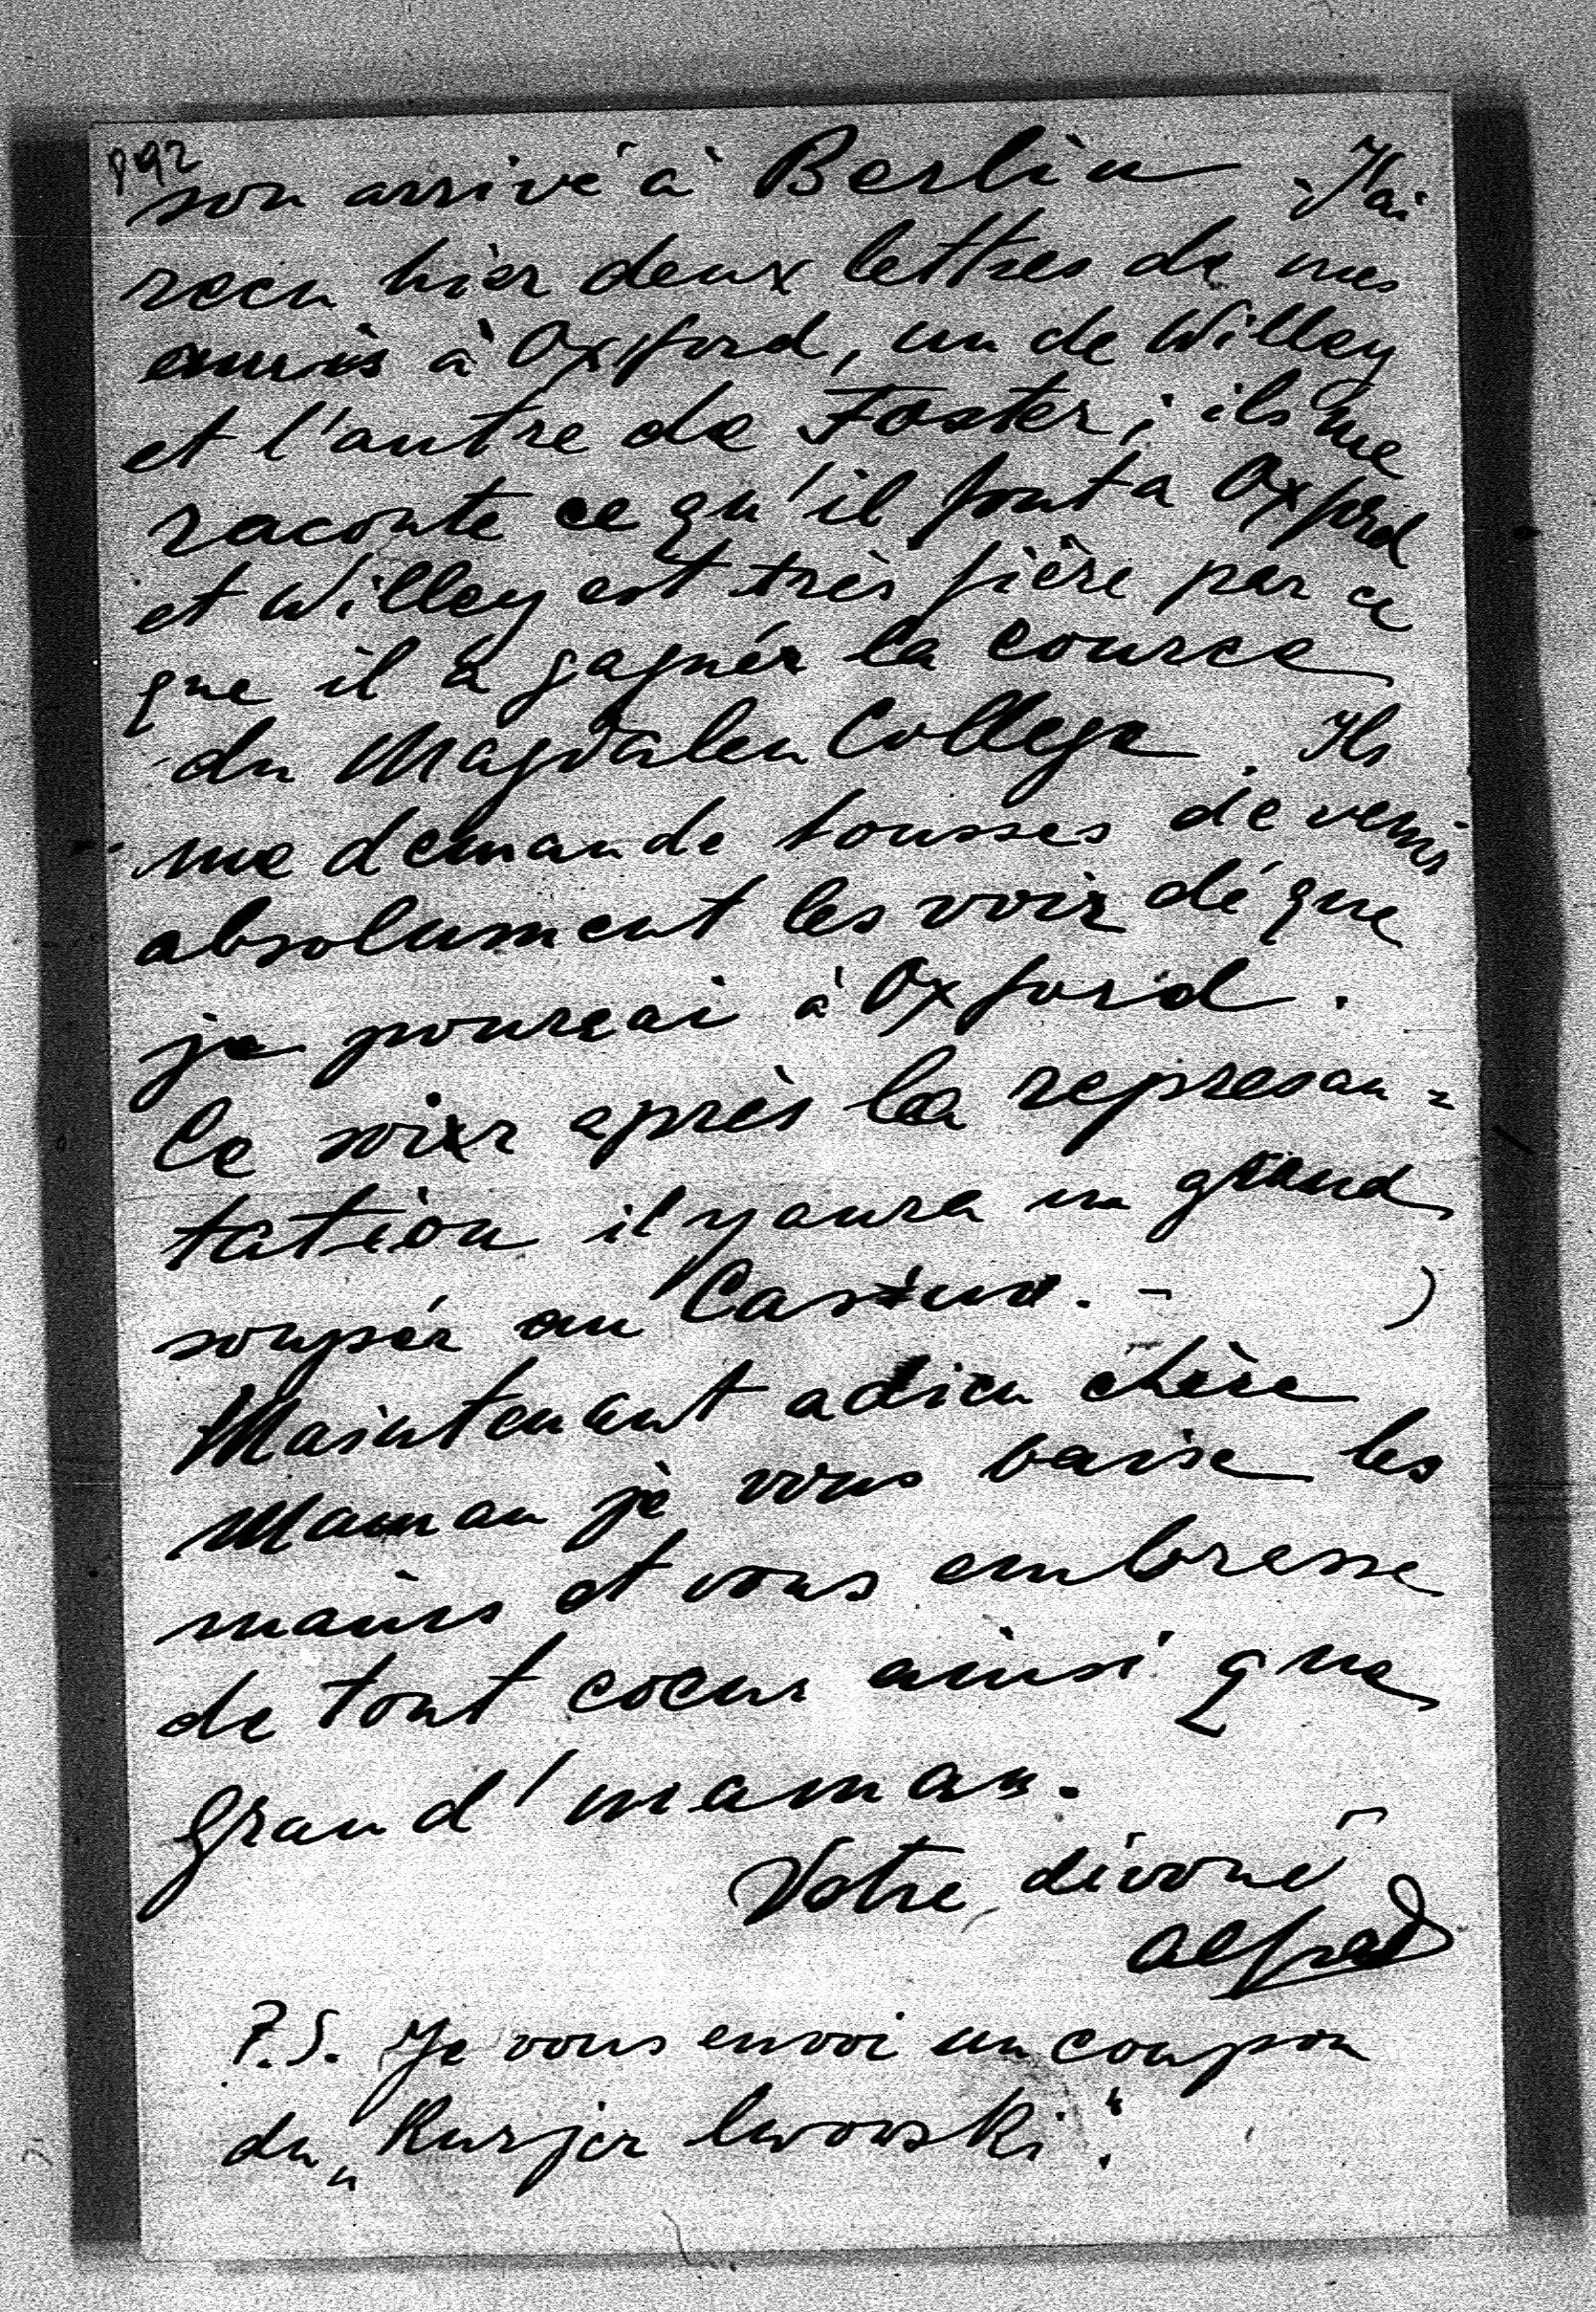 892
son arrivé à Berlin. J'ai
recu hier deux lettres de mes
amis à Oxford, un de Willey
et l'autre de Foster; ils me
raconte ce qu'il font a Oxford
et Willey est très fière par ce
que il a gagnér la cource
du Magdalen College. Ils
me demande tousses de venir
absolument les voir dé que
je pourrai à Oxford.
Ce soir après la represan=
tation il y aura un grand
soupér au Casino. -
Maintenant adieu chère
Maman je vous baise les
mains et vous embrasse
de tout coeur ainsi que
Grand'maman.
Votre dévoué
Alfred
P.S. Je vous envoi un coupon
du „Kurjer lwowski".